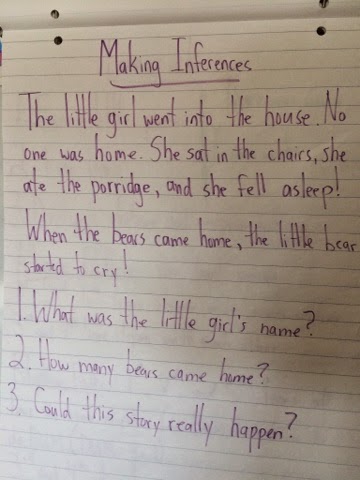 Making Inferences
The little girl went into the house. No
one was home. She sat in the chairs, she
ate the porridge, and she fell asleep!
When the bears came home, the little bear
started to cry!
1. What was the little girl's name?
2. How many bears came home?
3. Could this story really happen?